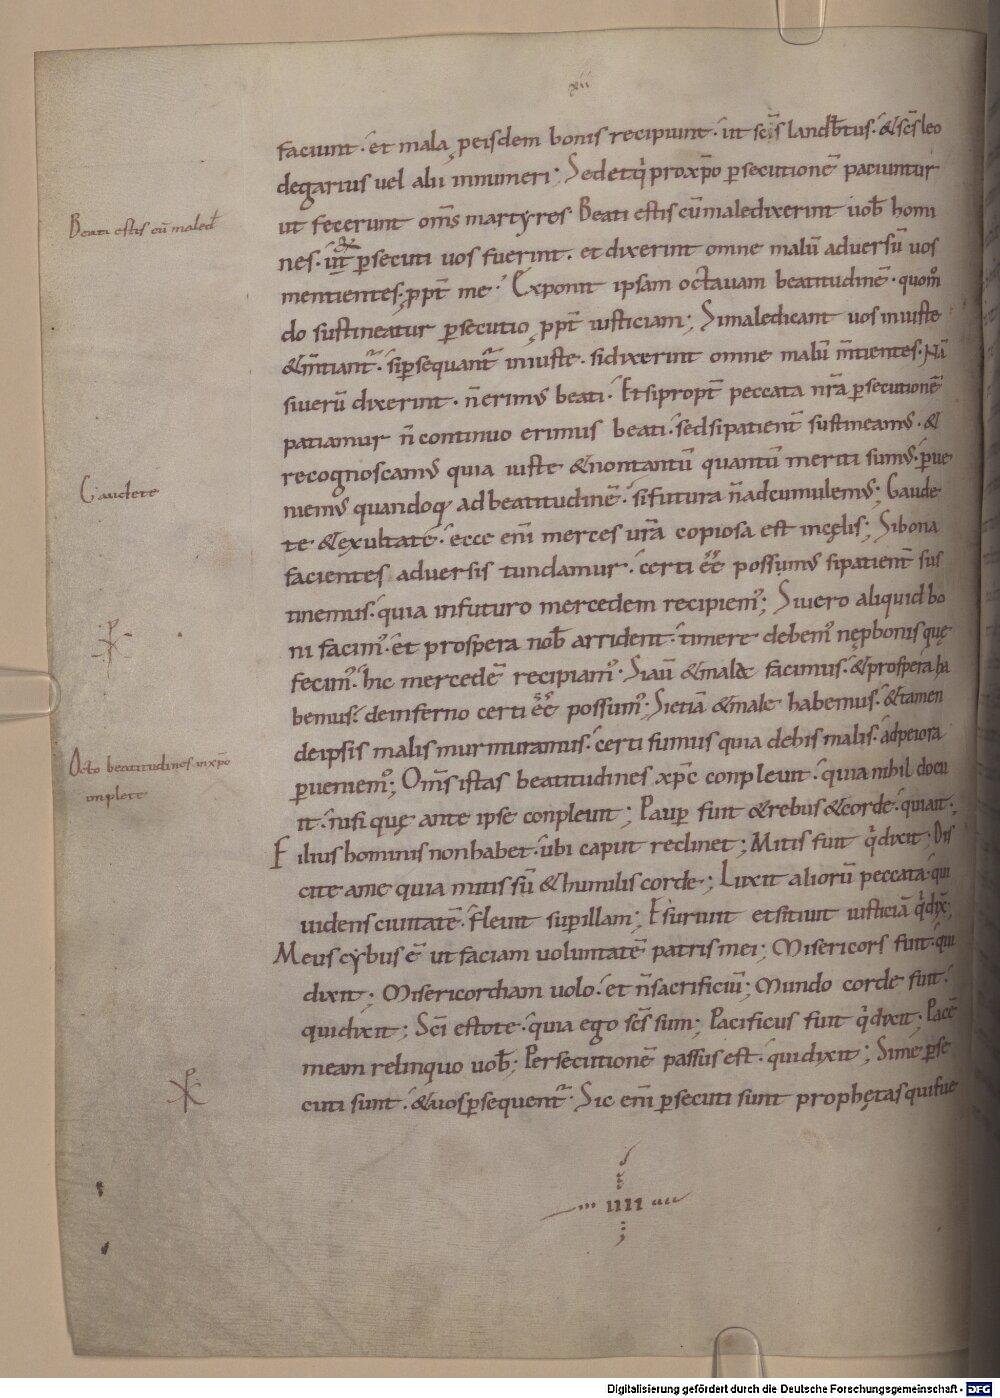 xii
faciunt · et mala p eisdem bonis recipiunt · ut sc̄s landb̄tus · & sc̄s leo
degarius uel alii innumeri ; Sed et q̇ pro xp̄o p̱secutionē patiuntur
Beati estis cū maled̄
ut fecerunt om̄s martyres · Beati estis cū maledixerint uob̄ homi
nes · ut p̱secuti uos fuerint · et dixerint omne malū adversū uos
mentientes · ppt̄ me · Exponit ipsam octavam beatitudinē · quom̊
do sustineatur p̱secutio ppt̄ iusticiam ; Si maledicant uos iniuste
& m̄tiant᷑ · si p̱sequant᷑ iniuste · si dixerint omne malū m̄tientes · Nā
si uerū dixerint · n̄ erimꝰ beati · Et si propt̄ peccata nr̄a p̱secutionē
patiamur n̄ continuo erimus beati · sed si patient̄ sustineamꝰ · &
recognoscamꝰ quia iuste & non tantū quantū meriti sumꝰ · p̱ue
Gaudete
niemꝰ quandoq; ad beatitudinē · si futura n̄ adcumulemꝰ ; Gaude
te & exultate · ecce eni̅ merces ur̄a copiosa est in cęlis ; Si bona
facientes adversis tundamur · certi ēē possumꝰ si patient̄ sus
tinemus · quia in futuro mercedem recipiemꝰ ; Si uero aliquid bo
ni facimꝰ · et prospera nob̄ arrident · timere debemꝰ ne p bonis quę
fecimꝰ · hic mercedē recipiamꝰ · Si aū & mala facimus · & prospera ha
bemus · de inferno certi ēē possumꝰ ; Si etiā & male habemus · & tamen
de ipsis malis murmuramus · certi sumus quia de his malis · ad peiora
Octo beatitudines in xp̄o
implete
p̱ueniemꝰ ; Om̄s istas beatitudines xp̄c conpleuit · quia nihil docu
it · nisi quę ante ipse conpleuit ; Paup̱ fuit & rebus & corde · qui ait ;
Filius hominis non habet · ubi caput reclinet ; Mitis fuit q̇ dixit ; Dis
cite a me quia mitis sū & humilis corde ; Luxit aliorū peccata · qui
uidens ciuitatē · fleuit sup̱ illam ; Esuriuit et sitiuit iusticiā q̇ dix̄ ;
Meus cybus ē ut faciam uoluntatē patris mei ; Misericors fuit · qui
dixit ; Misericordiam uolo · et n̄ sacrificiū ; Mundo corde fuit ·
qui dixit ; Sc̄i estote · quia ego sc̄s sum ; Pacificus fuit q̇ dixit · Pacē
meam relinquo uob̄ ; Persecutionē passus est · qui dixit ; Si me p̱se
cuti sunt · & uos p̱sequent᷑ · Sic eni̅ p̱secuti sunt prophętas qui fue
IIII
Digitalisierung gefördert durch die Deutsche Forschungsgemeinschaft - DFG